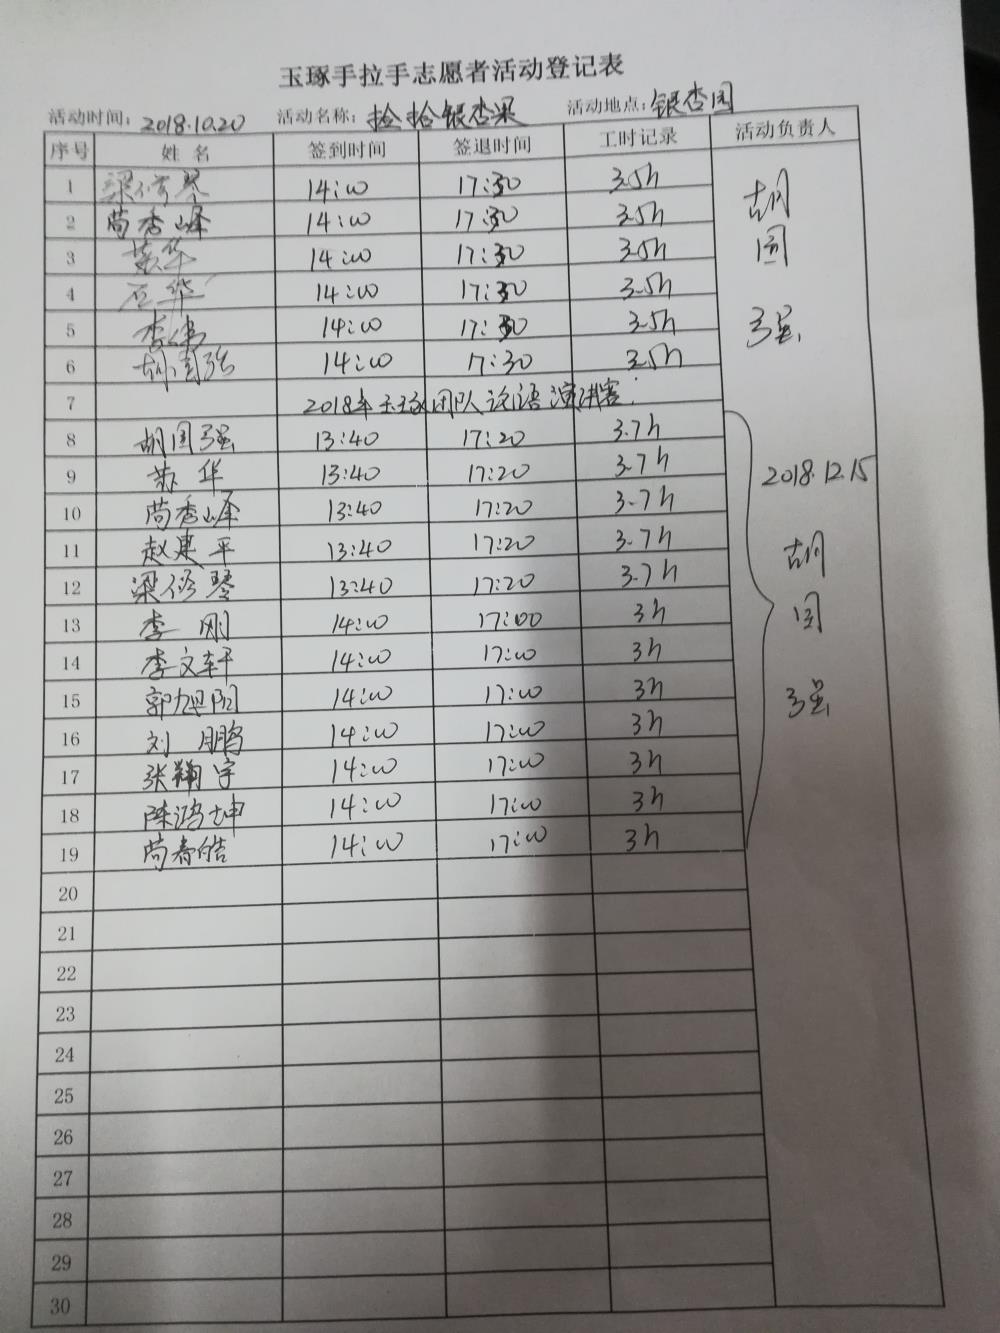 玉琢手拉手志愿者活动登记表
活动时间：2018.10.20 活动名称：捡拾银杏果 活动地点：银杏园
序号 姓名 签到时间 签退时间 工时记录 活动负责人
1 梁修琴 14:00 17:30 3.5h
2 苘秀峰 14:00 17:30 3.5h
3 苏华 14:00 17:30 3.5h
4 石华 14:00 17:30 3.5h
5 李伟 14:00 17:30 3.5h
6 胡国强 14:00 17:30 3.5h
胡国强
7 2018年玉琢团队论语演讲赛：
8 胡国强 13:40 17:20 3.7h
9 苏华 13:40 17:20 3.7h
10 苘秀峰 13:40 17:20 3.7h
11 赵建平 13:40 17:20 3.7h
12 梁修琴 13:40 17:20 3.7h
13 李刚 14:00 17:00 3h
14 李文轩 14:00 17:00 3h
15 郭旭阳 14:00 17:00 3h
16 刘鹏 14:00 17:00 3h
17 张翔宇 14:00 17:00 3h
18 陈鸿坤 14:00 17:00 3h
19 苘春皓 14:00 17:00 3h
2018.12.15
胡国强
20
21
22
23
24
25
26
27
28
29
30